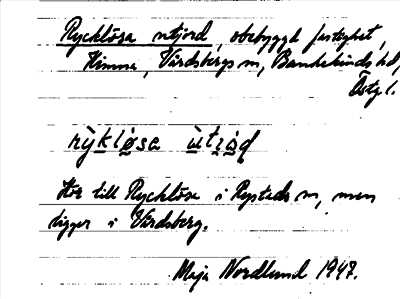 Rycklösa utjord, obebyggd fastighet,
Himna, Vårdsbergs sn, Bankekinds hd,
Östgl.
rỳklø̀sa ùtɩ̀ọɖ
Hör till Rycklösa i Rystads sn, men
ligger i Vårdsberg.
Maja Nordlund 1947.